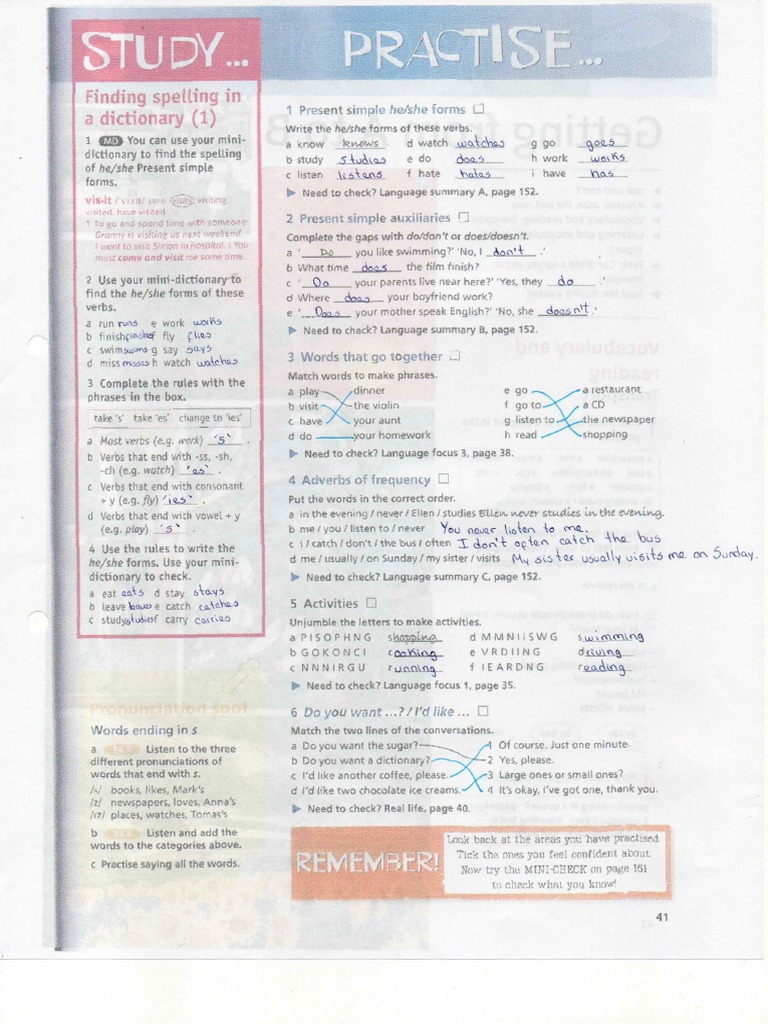 STUDY...
PRACTISE...
Finding spelling in
a dictionary (1)
1 MD You can use your mini-
dictionary to find the spelling
of he/she Present simple
forms.
vis·it /ˈvɪzɪt/ verb visits, visiting,
visited, have visited
1 to go and spend time with someone:
Granny is visiting us next weekend.
I went to visit Simon in hospital. ◊ You
must come and visit me some time.
2 Use your mini-dictionary to
find the he/she forms of these
verbs.
a run runs e work works
b finish finishes f fly flies
c swim swims g say says
d miss misses h watch watches
3 Complete the rules with the
phrases in the box.
take 's' take 'es' change to 'ies'
a Most verbs (e.g. work) 's'
b Verbs that end with -ss, -sh,
-ch (e.g. watch) 'es' .
c Verbs that end with consonant
+ y (e.g. fly) 'ies' .
d Verbs that end with vowel + y
(e.g. play) 's' .
4 Use the rules to write the
he/she forms. Use your mini-
dictionary to check.
a eat eats d stay stays
b leave leaves e catch catches
c study studies f carry carries
Pronunciation spot
Words ending in s
a Listen to the three
different pronunciations of
words that end with s.
/s/ books, likes, Mark's
/z/ newspapers, loves, Anna's
/ɪz/ places, watches, Tomas's
b Listen and add the
words to the categories above.
c Practise saying all the words.
1 Present simple he/she forms
Write the he/she forms of these verbs.
a know knows d watch watches g go goes
b study studies e do does h work works
c listen listens f hate hates i have has
Need to check? Language summary A, page 152.
2 Present simple auxiliaries
Complete the gaps with do/don't or does/doesn't.
a ' Do you like swimming?' 'No, I don't .'
b What time does the film finish?
c ' Do your parents live near here?' 'Yes, they do .'
d Where does your boyfriend work?
e ' Does your mother speak English?' 'No, she doesn't .'
Need to check? Language summary B, page 152.
3 Words that go together
Match words to make phrases.
a play dinner e go a restaurant
b visit the violin f go to a CD
c have your aunt g listen to the newspaper
d do your homework h read shopping
Need to check? Language focus 3, page 38.
4 Adverbs of frequency
Put the words in the correct order.
a in the evening / never / Ellen / studies Ellen never studies in the evening.
b me / you / listen to / never You never listen to me.
c I / catch / don't / the bus / often I don't often catch the bus
d me / usually / on Sunday / my sister / visits My sister usually visits me on Sunday.
Need to check? Language summary C, page 152.
5 Activities
Unjumble the letters to make activities.
a P I S O P H N G shopping d M M N I i S W G swimming
b G O K O N C I cooking e V R D I I N G driving
c N N N I R G U running f I E A R D N G reading
Need to check? Language focus 1, page 35.
6 Do you want ...? / I'd like ...
Match the two lines of the conversations.
a Do you want the sugar? 1 Of course. Just one minute.
b Do you want a dictionary? 2 Yes, please.
c I'd like another coffee, please. 3 Large ones or small ones?
d I'd like two chocolate ice creams. 4 It's okay, I've got one, thank you.
Need to check? Real life, page 40.
REMEMBER!
Look back at the areas you have practised.
Tick the ones you feel confident about.
Now try the MINI-CHECK on page 151
to check what you know!
41